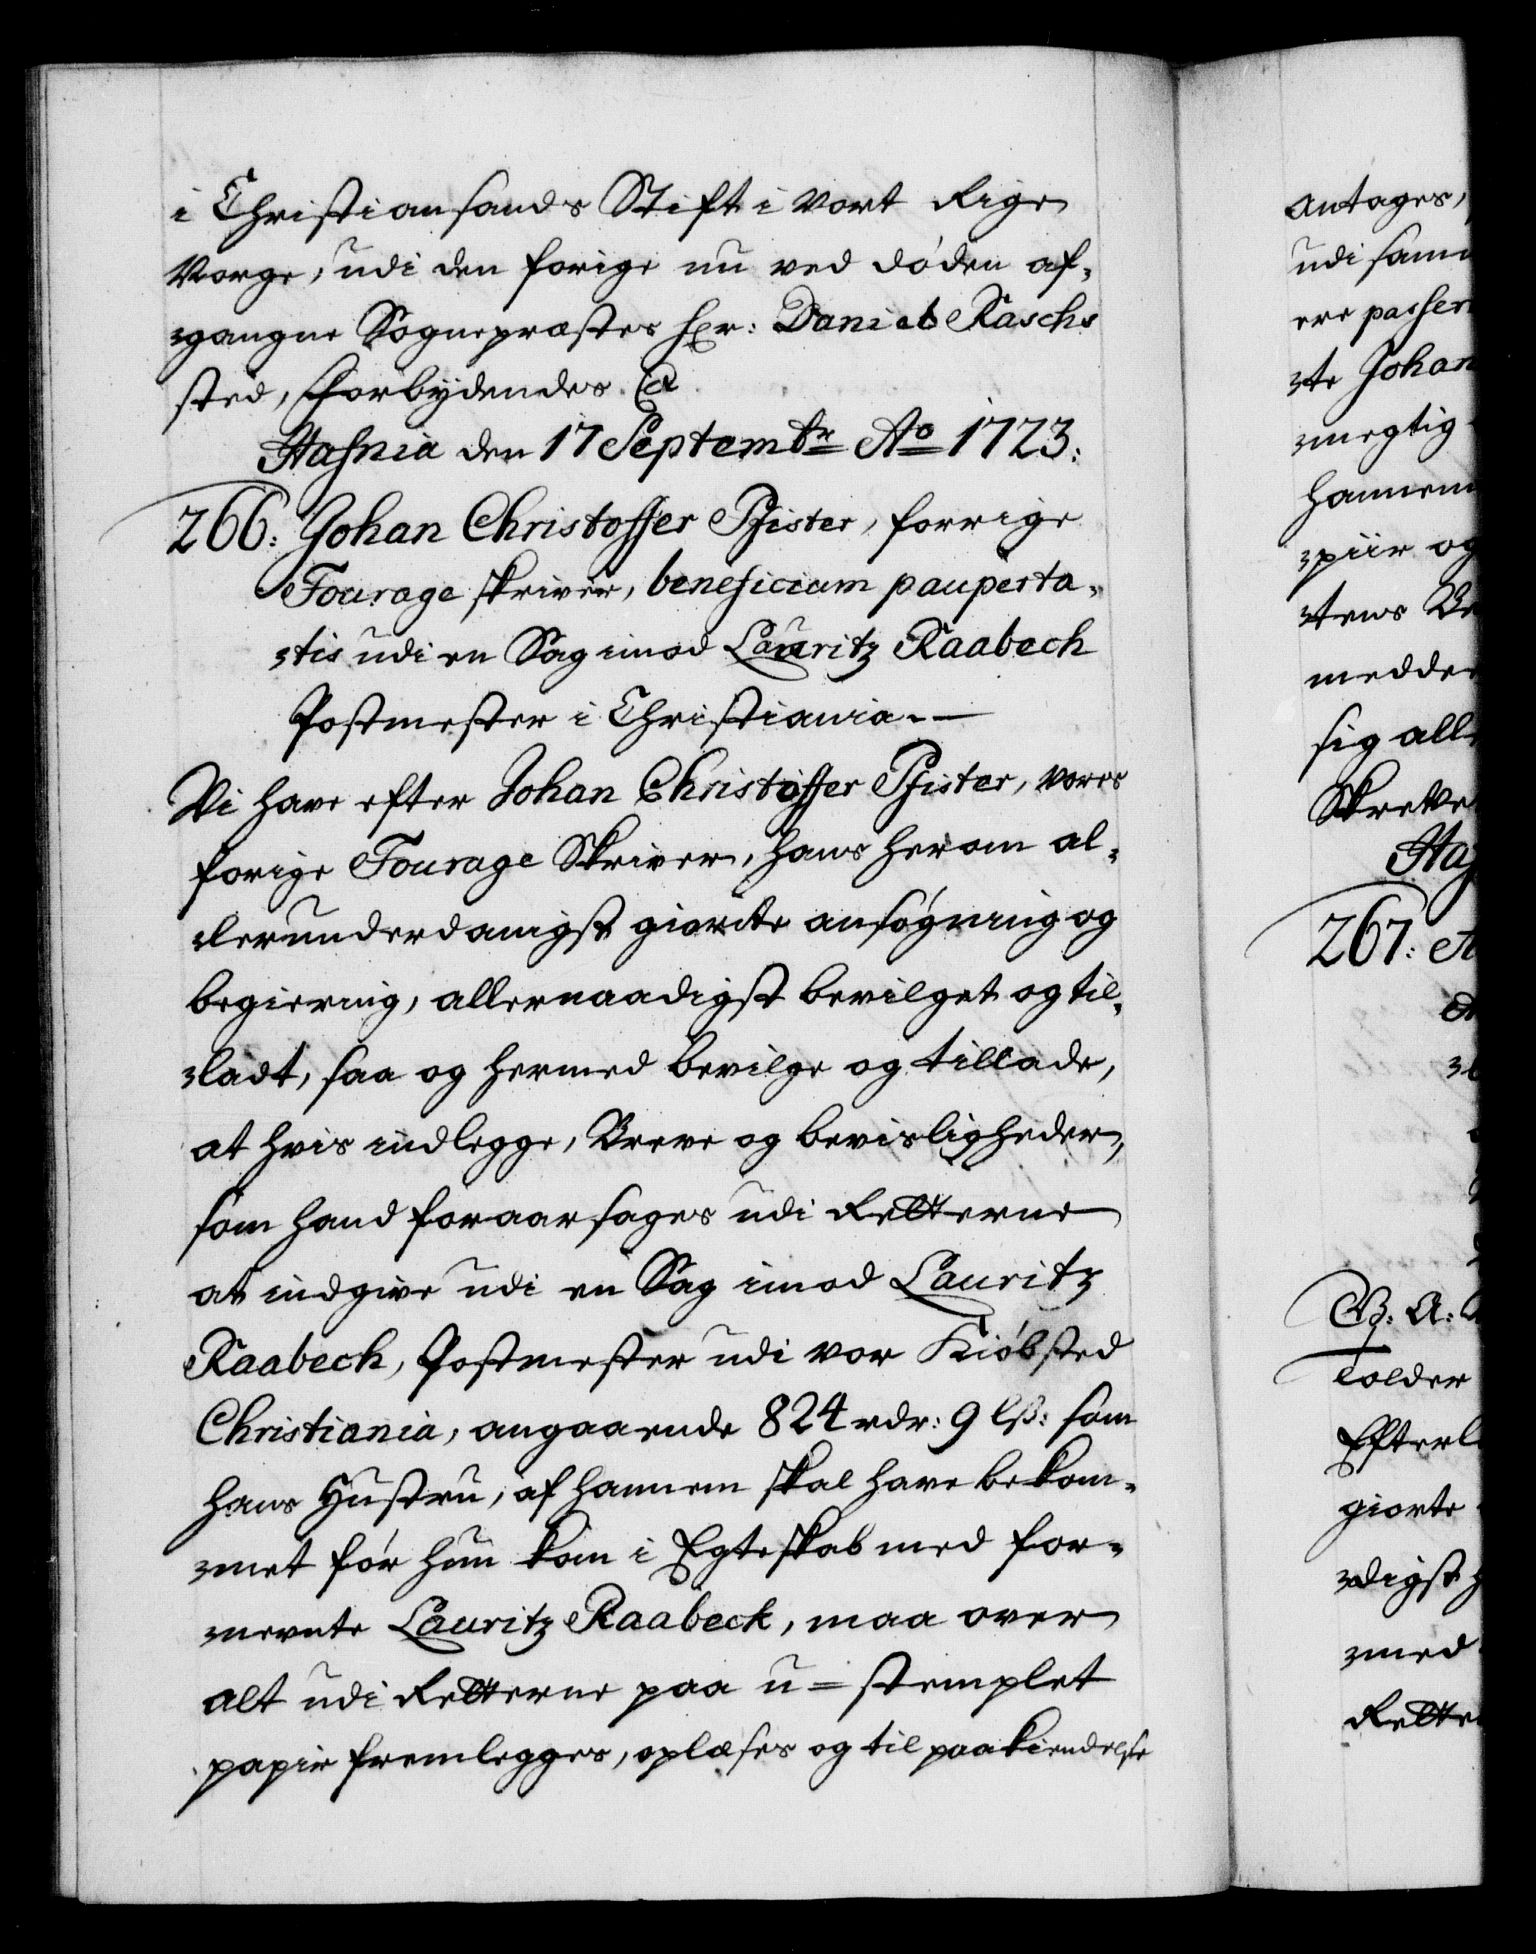 i Christiansands Stift i vort Rige
Norge, udi den forige nu ved døden af-
gangne Sogneprestes Hr: Daniel Raschs
sted, Forbydendes &
Hafnia den 17 Septembr Ao 1723:
266: Johan Christoffer Pfister, forrige
Fourage skriver, beneficium pauperta-
tis udi en Sag imod Lauritz Raabech
Postmester i Christiania.
Vi have efter Johan Christoffer Pfister, vores
forige Fourage Skriver, hans herom al-
lerunderdanigst giorte ansøgning og
begiering, allernaadigst bevilget og til-
ladt, saa og hermed bevilge og tillade,
at hvis indlegge, Breve og bevisligheder,
som hand foraarsages udi Retterne
at indgive udi en Sag imod Lauritz
Raabech, Postmester udi vor Kiøbsted
Christiania, angaaende 824 rdr: 9 lß: som
hans Hustru, af hannem skal have bekom-
met før hun kom i Egteskab med for-
nevnte Lauritz Raabeck, maa over
alt udi Retterne paa u=stemplet
papir fremlegges, oplæses og til paakiendelse
antages,
udi sam
ere passer
te Johan
megtig
hannem
piir og
tens Be
meddee
sig alle
Skreve
Haf
267: A
B: A:
tolder
Efterl
giorte
digst h
med
Rette